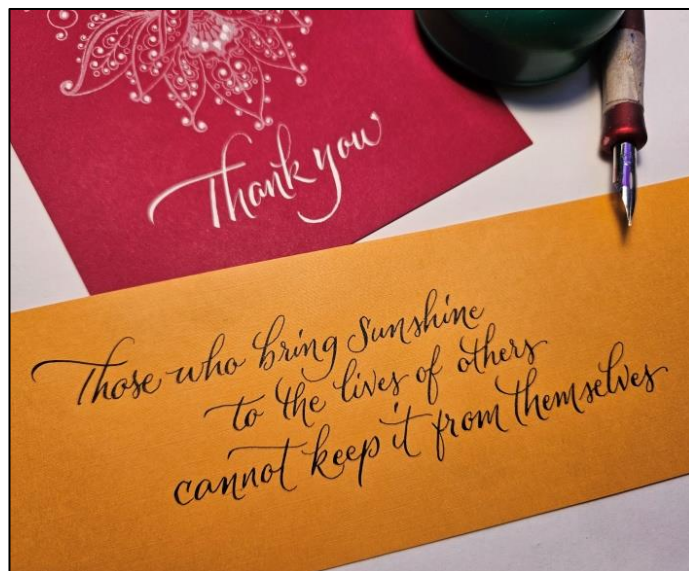 Thank you
Those who bring sunshine
to the lives of others
cannot keep it from themselves